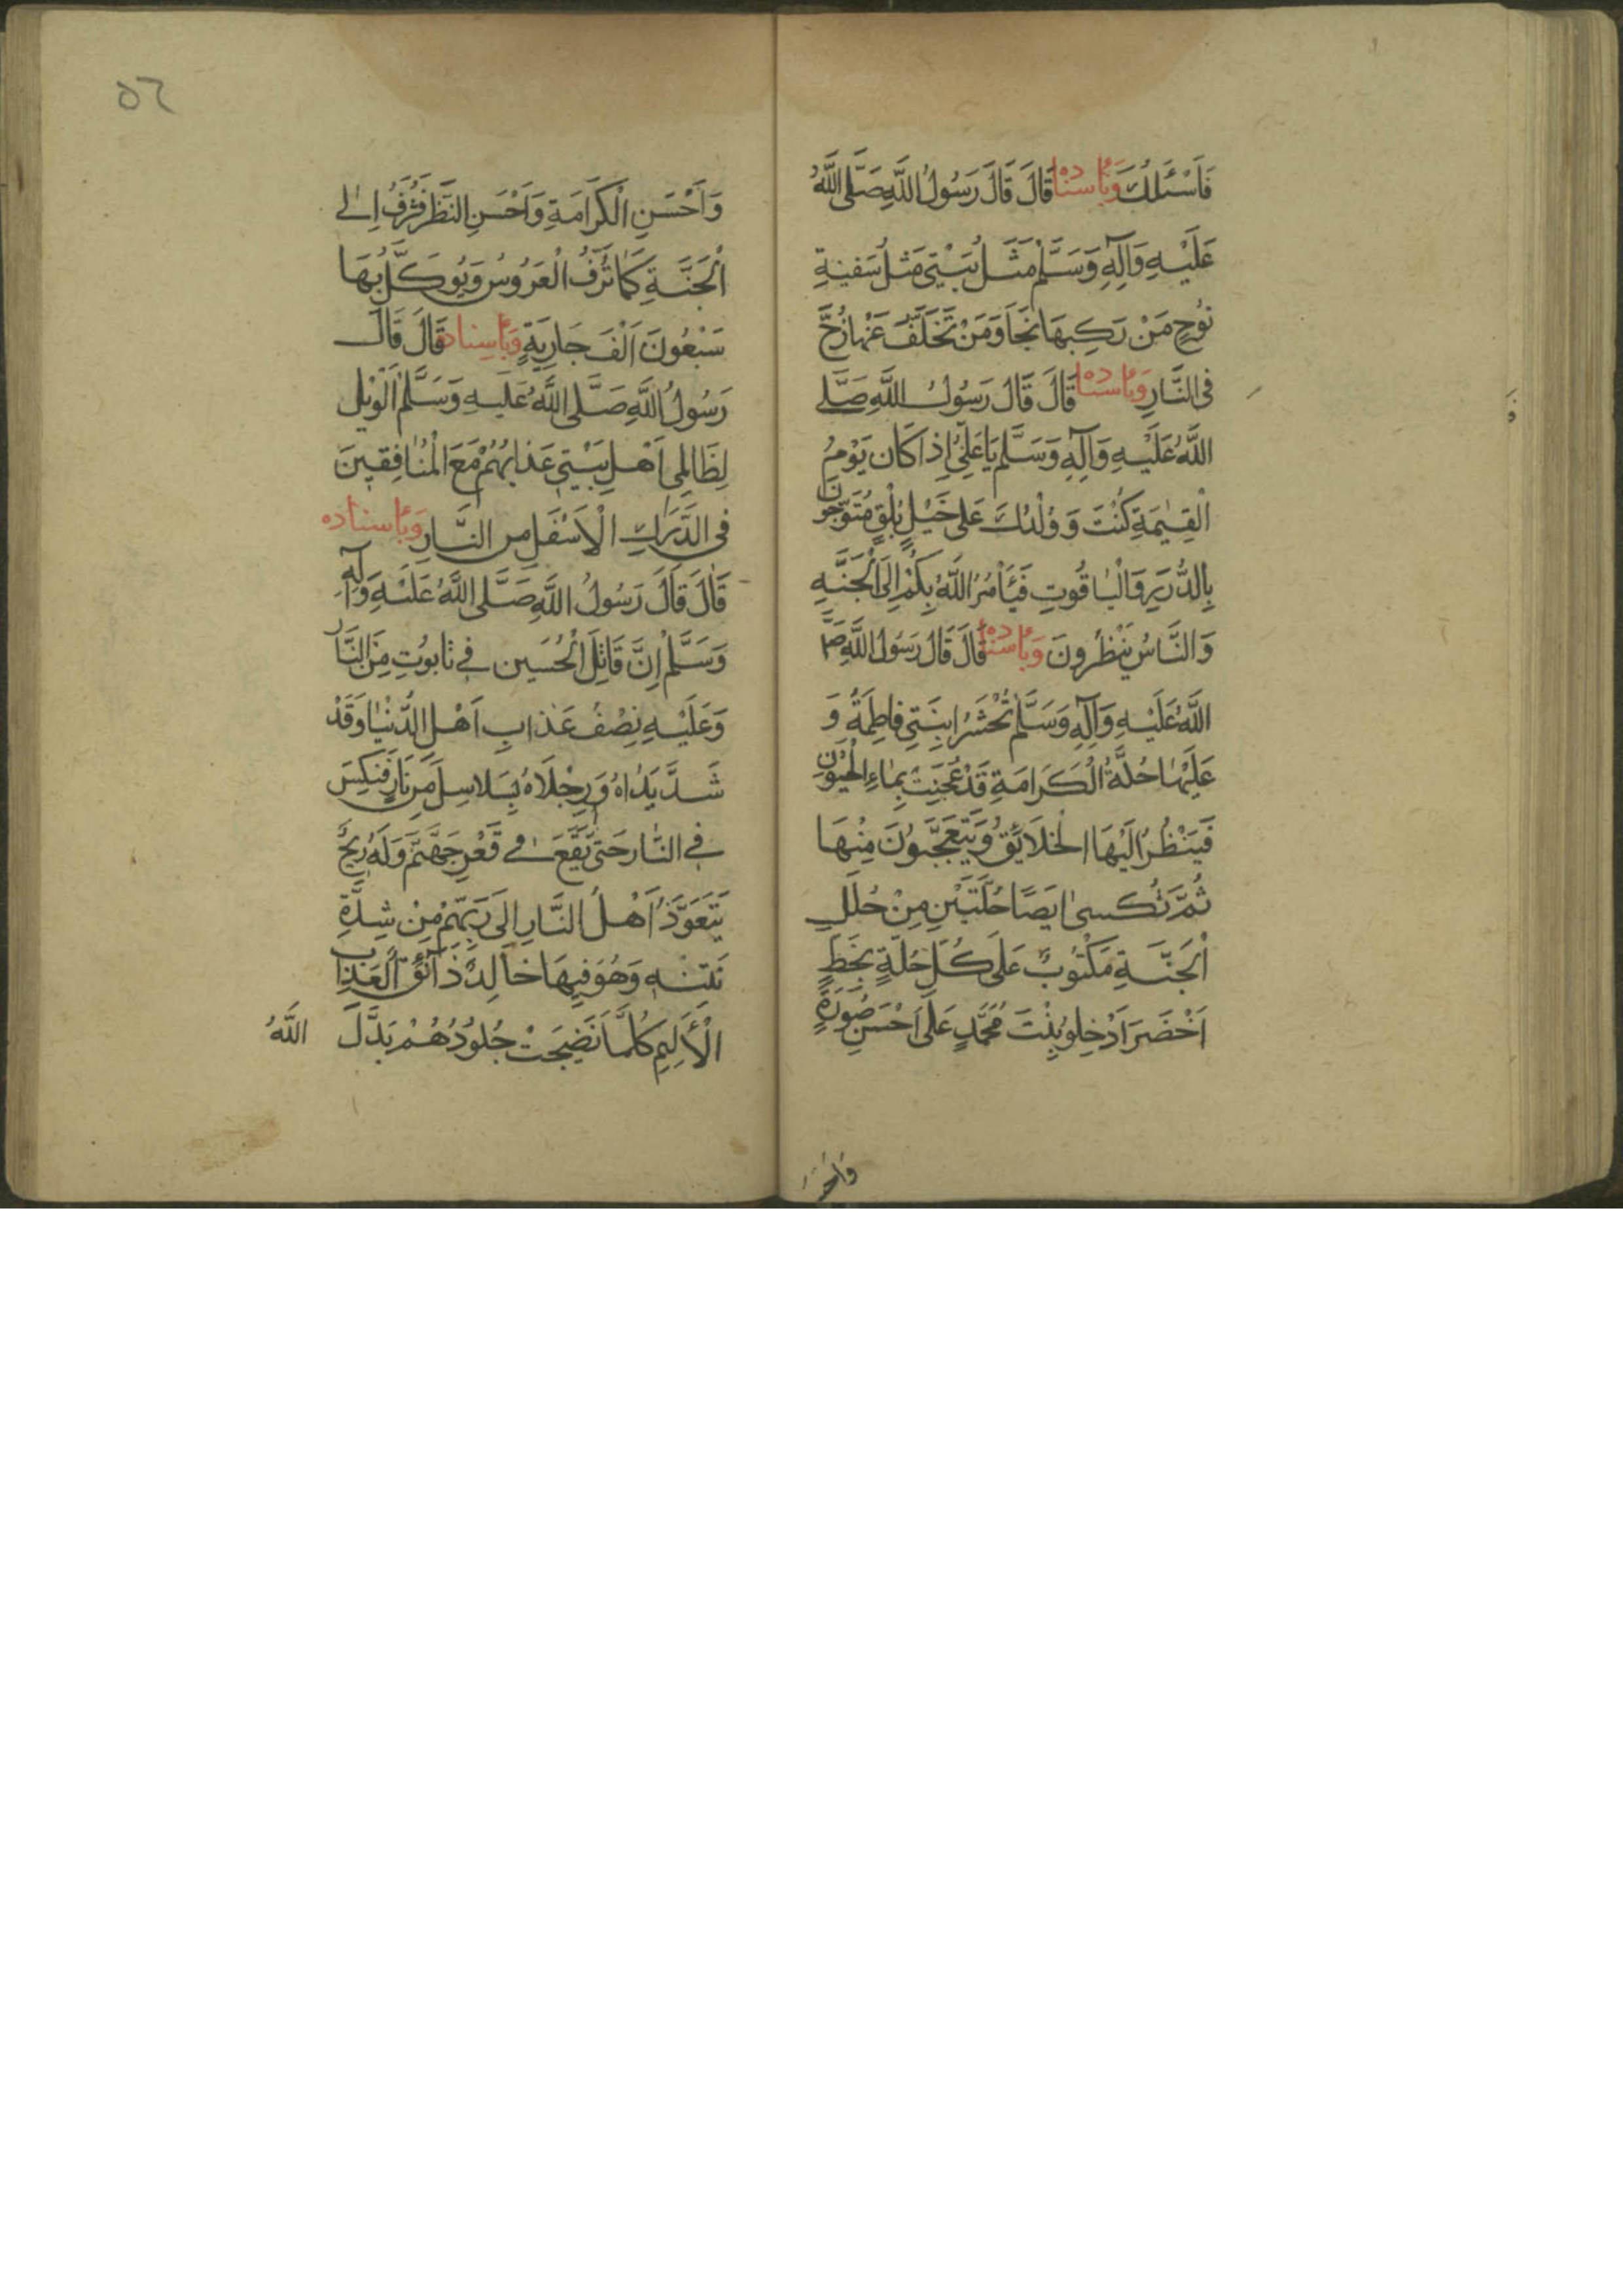 فَاَسْئَلُكَ وَبِاسناده قَالَ قَالَ رَسُولُ اللَّهِ صَلَّى اللَّهُ
عَلَيْهِ وَآلِهِ وَسَلَّمْ مَثَلُ بَيْتِي مَثلُ سَفينةِ
نُوحٍ مَنْ رَكِبهَا نَجَا وَمَنْ تَخَلَّفَ عَنْهَا زُخَّ
فى النَّارِ وَبِاسناده قَالَ قَالَ رَسُولُ اللَّهِ صَلَّى
اللَّهُ عَلَيْهِ وَآلِهِ وَسَلَّم يَا عَلِىُّ اِذا كَان يَوْمُ
الْقِيٰمَةِ كُنْتَ وَ وُلْدُكَ عَلى خَيْلٍ بُلْقٍ مُتَوَّجُونَ
بِالدُّرِّ وَالْيٰاقُوتِ فَيَأْمُرُ اللَّهُ بِكُمْ اِلَى الْجَنَّةِ
وَالنَّاسُ يَنْظُرونَ وَبِاسناده قَالَ قَالَ رَسُولُ اللَّهِ صَلَّى
اللَّهُ عَلَيْهِ وَآلِهِ وَسَلَّم تُحْشَرُ ابنَتِي فاطِمَةُ وَ
عَلَيْهٰا حُلَّةُ الْكَرَامَةِ قَدْ عُجِنَتْ بِمٰاءِ الْحَيْوٰنِ
فَيَنْظُرُ اِلَيْهَا الْخَلَايِقُ وَيَتَعَجَّبوُنَ مِنْهَا
ثُمَّ تُكسىٰ ايَضًا حُلَّتَيْنِ مِنْ حُلَلِ
الْجَنَّةِ مَكْتُوبٌ عَلَى كُلِّ حُلّةٍ بِخَطٍّ
اَخْضَرَ اَدْخِلوُ بِنْتَ مُحَمَّدٍ عَلَى اَحْسَنِ صُورَةٍ
وَاَحْسَنِ
٥٦
وَاَحْسَنِ الْكَرَامَةِ وَاَحْسَنِ النَّظَرِ فَتُزَفُّ اِلى
الْجَنَّةِ كَمَا تُزَفُّ الْعَرُوسُ وَيُوَكَّلُ بُهَا
سَبْعُونَ اَلْفَ جَارِيَةٍ وَبِاسِناده قَالَ قَالَ
رَسُولُ اللَّهِ صَلَّى اللَّهُ عَليهِ وَسَلَّمْ اَلْوَيْلُ
لِظَالِمِى اَهْلِ بَيْتِي عَذابُهُمْ مَعَ الْمُنٰافِقينَ
فى الدَّرَكِ الْاَسْفَلِ مِن النَّارِ وَبِاسناده
قَالَ قَالَ رَسُولُ اللَّهِ صَلَّى اللَّهُ عَلَيْهِ وَآلِهِ
وَسَلَّمْ اِنَّ قَاتِلَ الْحُسَين فى تٰابوُتٍ مِنَ النَّار
وَعَلَيْهِ نِصْفُ عَذابِ اَهْلِ الدُّنْيٰا وَقَدْ
شَدَّ يَدٰاهُ وَرِجْلَاهُ بِسَلاسِلَ مِن نَارٍ فَنكِسَ
في النّٰار حَتى يَقَعَ فى قَعْرِ جَهَنَّم وَلَهُ رِيحٌ
يَتَعَوَّذُ اَهْلُ النَّارِ اِلَى رَبِّهِمْ مِنْ شِدَّةِ
نَتنِهِ وَهُوَ فِيهَا خاٰلِدٌ ذَآئقُ الْعَذٰابِ
الْأَلِيمِ كُلَّمَا نَضِجَتْ جُلوُدُهُمْ بَدَّلَ
اللَّهُ